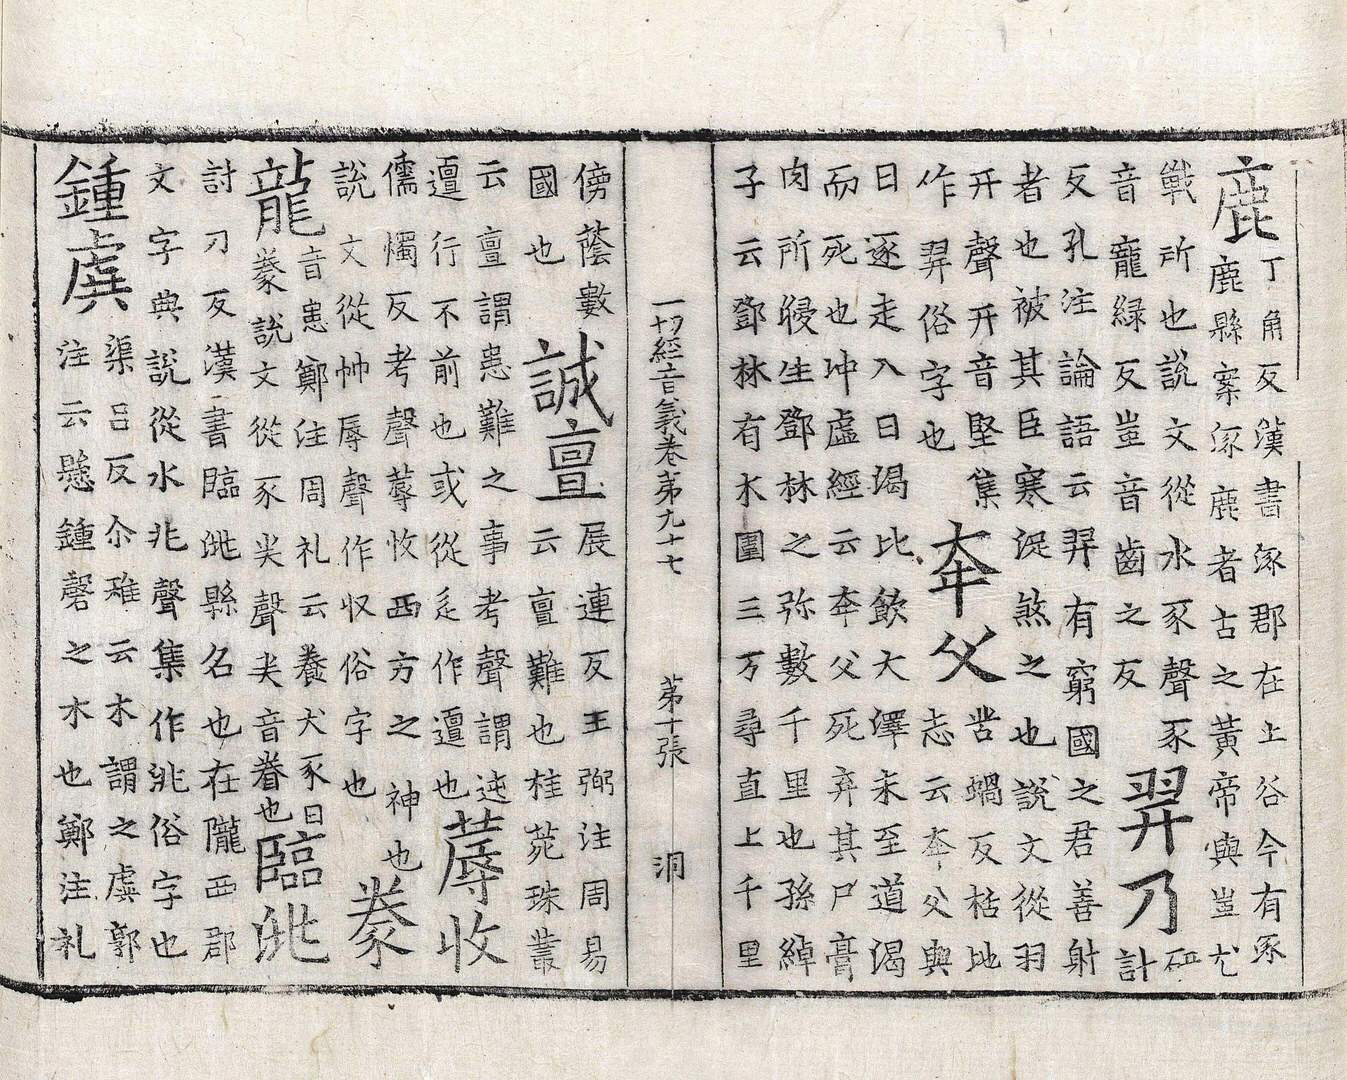 鹿
丁角反漢書涿郡在上谷今有涿
鹿縣案涿鹿者古之黃帝與蚩尤
戰所也說文從水豖聲豖
音寵緑反蚩音齒之反
羿乃
研
計
反孔注論語云羿有窮國之君善射
者也被其臣寒浞煞之也說文從羽
幵聲幵音堅集
作羿俗字也
夲父
苦蝸反枯地
志云夲父與
日逐走入日渴比飲大澤未至道渴
而死也冲虛經云夲父死弃其尸膏
肉所侵生鄧林之弥數千里也孫綽
子云鄧林有木圍三万尋直上千里
一切經音義卷第九十七 第十張 洞
傍蔭數
國也
誠亶
展連反王弼注周易
云亶難也桂菀珠叢
云亶謂患難之事考聲謂迍
邅行不前也或從辵作邅也
蓐收
儒燭反考聲蓐收西方之神也
說文從帅辱聲作収俗字也
豢
龍
音患鄭注周礼云養犬豕曰
豢說文從豕𢍏聲𢍏音眷也
臨洮
討刀反漢書臨洮縣名也在隴西郡
文字典說從水兆聲集作洮俗字也
鍾虡
渠吕反尒雅云木謂之虡郭
注云懸鍾磬之木也鄭注礼